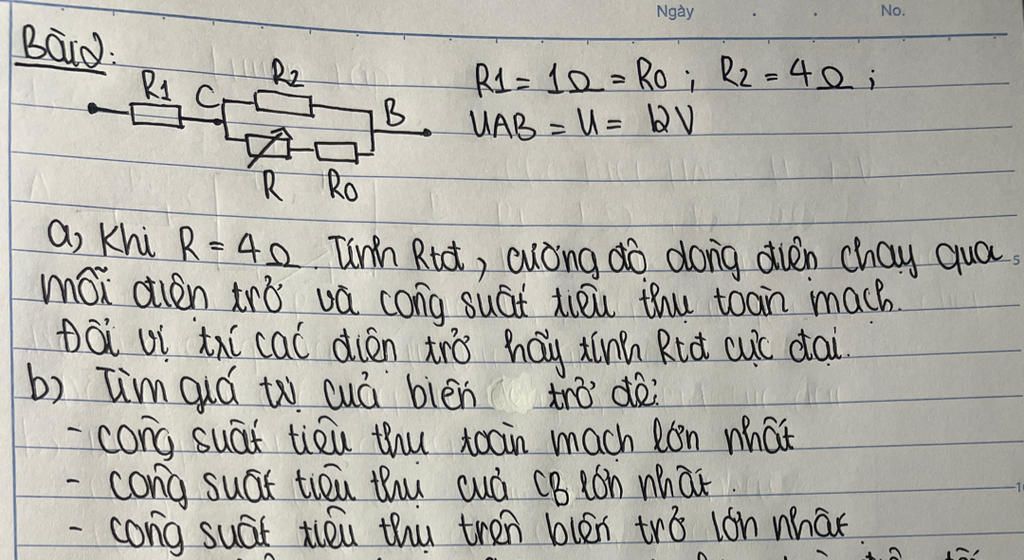 Ngày . . No.
Bài 2:
R1 C R2 B
R R0
R1 = 1Ω = R0 ; R2 = 4Ω ;
UAB = U = 12V
a, Khi R = 4Ω. Tính Rtđ, cường độ dòng điện chạy qua
mỗi điện trở và công suất tiêu thụ toàn mạch.
Đổi vị trí các điện trở hãy tính Rtđ cực đại.
b) Tìm giá trị của biến trở để:
- công suất tiêu thụ toàn mạch lớn nhất
- công suất tiêu thụ của CB lớn nhất.
- công suất tiêu thụ trên biến trở lớn nhất
5